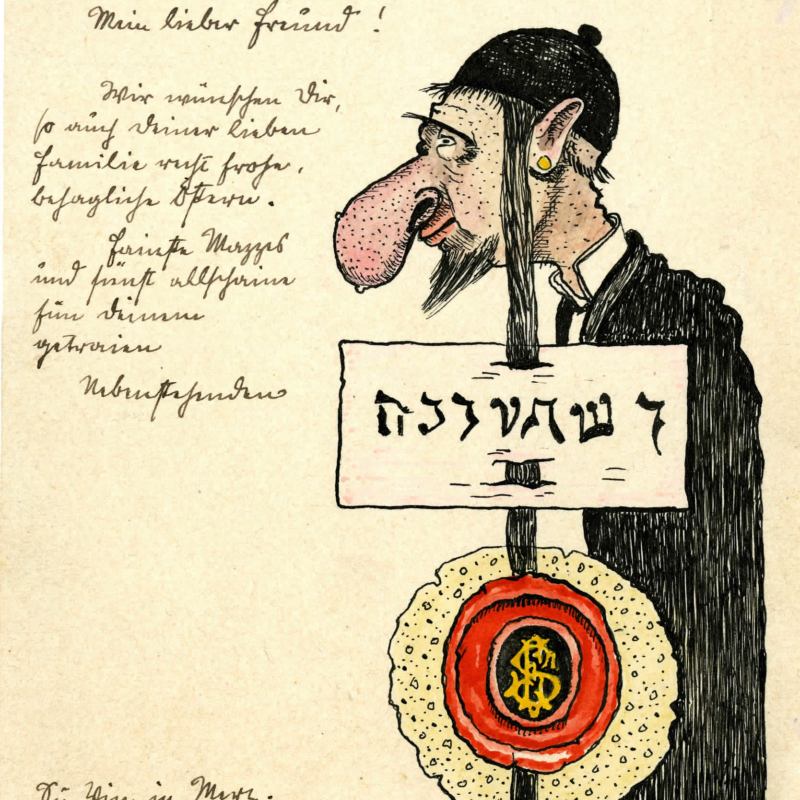 Mein lieber Freund!
Wir wünschen Dir,
so auch Deiner lieben
Familie recht frohe,
behagliche Ostern.
Fainste Mazzes
und sunst allschaine
für Deinem
getraien
Nebenstehenden
in